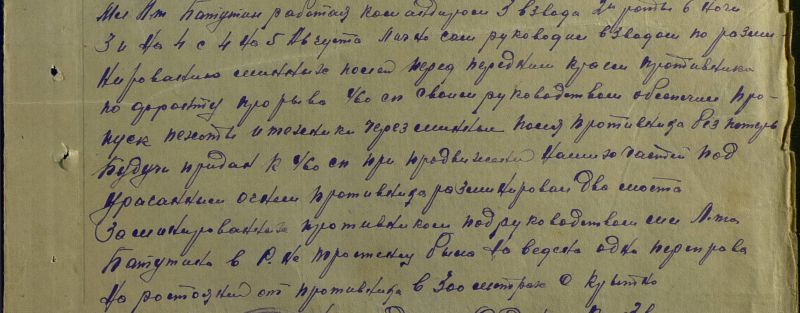 Мл Л-т Батутин работая командиром 3 взвода 2й роты в ночи
3 и на 4 с 4 на 5 Августа Лично сам руководил взводом по разми-
нированию минных полей перед передним краем противника
по фронту прорыва сп своим руководством обеспечил про-
пуск пехоты и техники через минные поля противника без потерь
Будучи придан к сп при продвижении наших частей под
ураганным огнем противника разминировал два моста
Заминированных противником под руководством мл Л-та
Батутина в была наведена одна переправа
На ростоянии от противника в 300 метрах